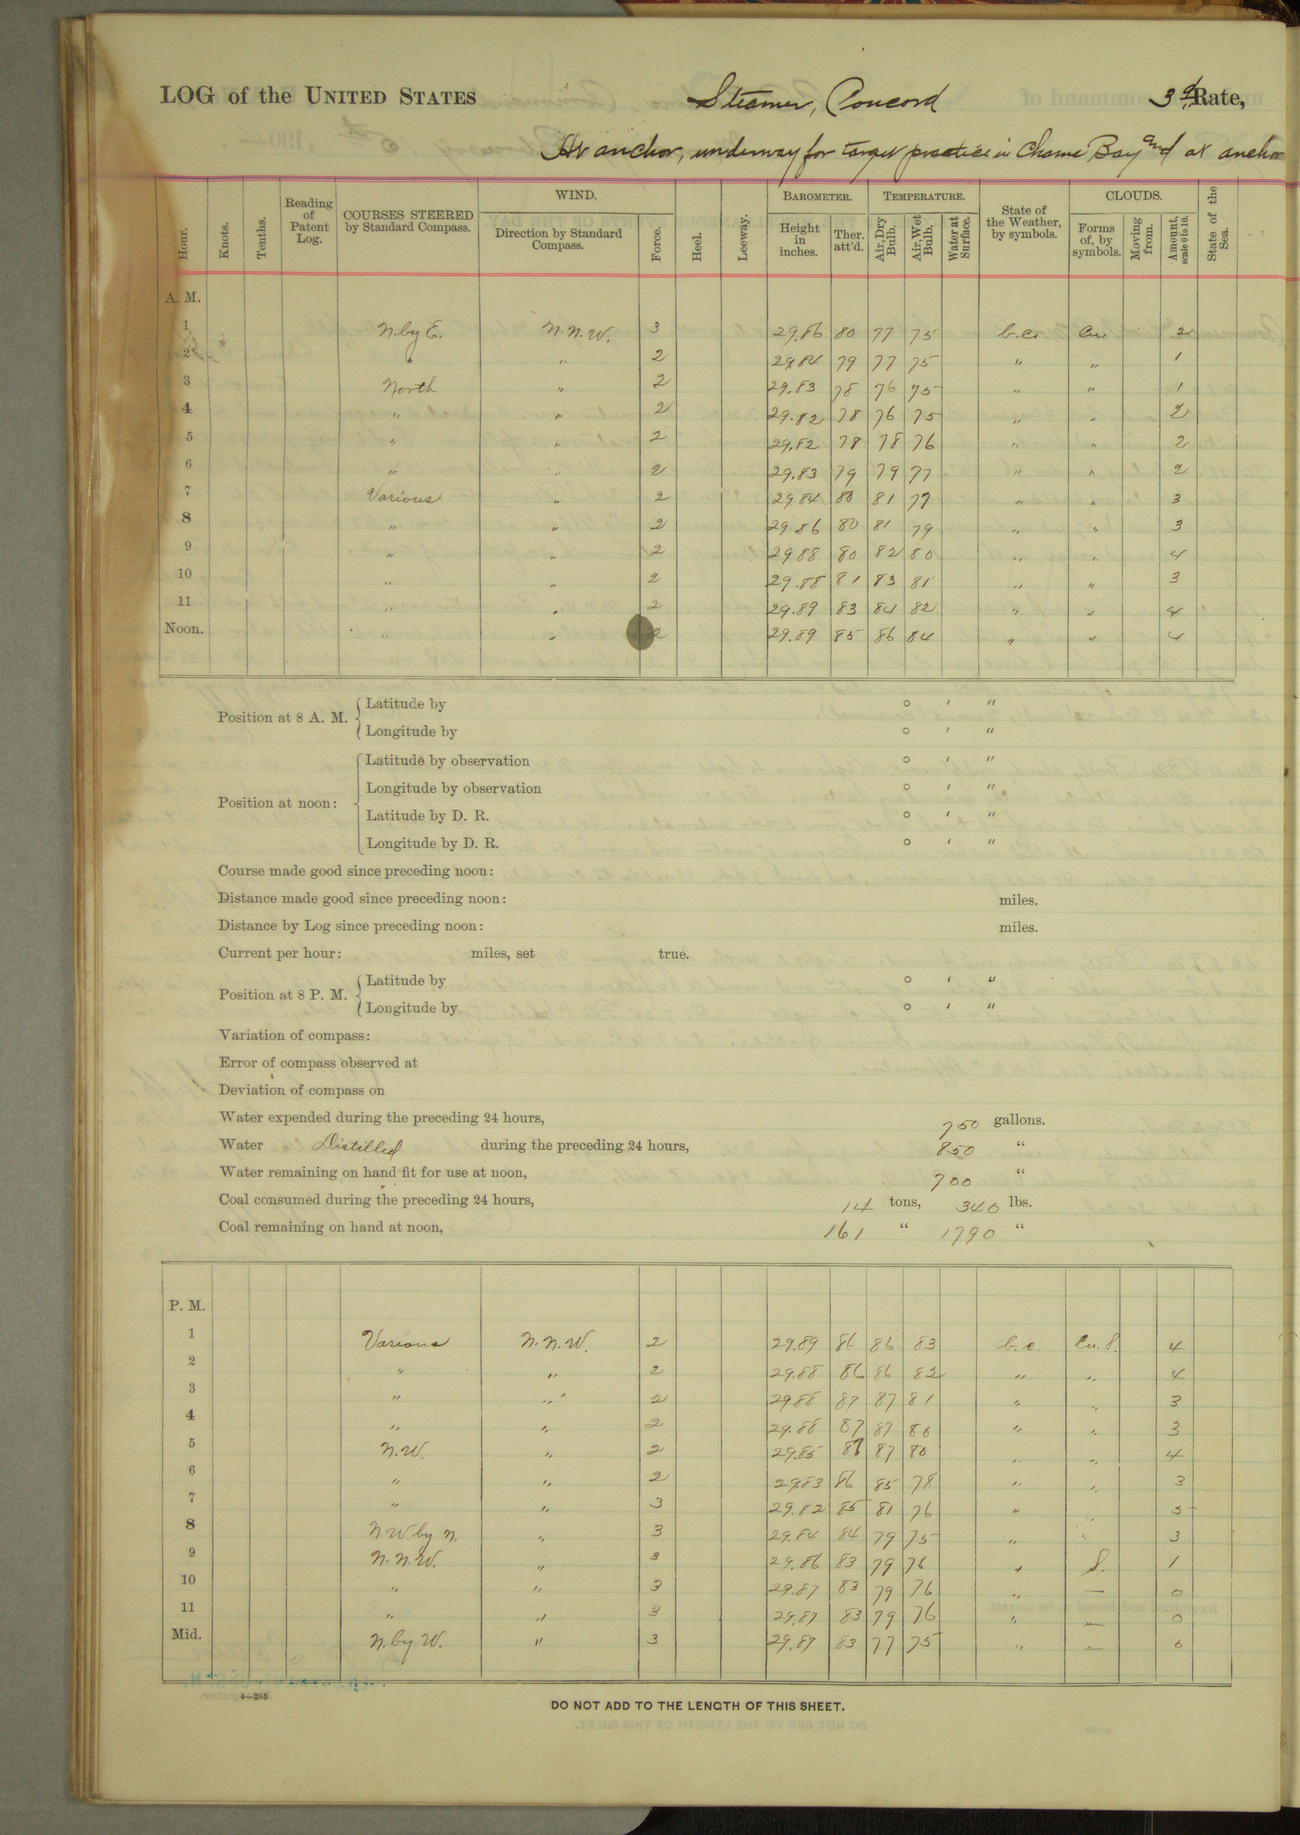 LOG of the UNITED STATES Steamer, Concord 3d Rate,
At anchor, underway for target practice in Chame Bay and at anchor
Hour. Knots. Tenths. Reading of Patent Log. COURSES STEERED by Standard Compass. WIND. Direction by Standard Compass. Force. Heel. Leeway. BAROMETER. Height in inches. Ther. att'd. TEMPERATURE. Air, Dry Bulb. Air, Wet Bulb. Water at Surface. State of the Weather, by symbols. CLOUDS. Forms of, by symbols. Moving from. Amount, scale 0 to 10. State of the Sea.
A. M.
1 N. by E. N. N. W. 3 29.86 80 77 75 b.c. Cu. 2
2 " " 2 29.84 79 77 75 " " 1
3 North " 2 29.83 78 76 75 " " 1
4 " " 2 29.82 78 76 75 " " 2
5 " " 2 29.82 78 78 76 " " 2
6 " " 2 29.83 79 79 77 " " 2
7 Various " 2 29.84 80 81 77 " " 3
8 " " 2 29.86 80 81 79 " " 3
9 " " 2 29.88 80 82 80 " " 4
10 " " 2 29.88 81 83 81 " " 3
11 " " 2 29.89 83 84 82 " " 4
Noon. " " 2 29.89 85 86 84 " " 4
Position at 8 A. M. Latitude by ° ' "
Longitude by ° ' "
Position at noon: Latitude by observation ° ' "
Longitude by observation ° ' "
Latitude by D. R. ° ' "
Longitude by D. R. ° ' "
Course made good since preceding noon:
Distance made good since preceding noon: miles.
Distance by Log since preceding noon: miles.
Current per hour: miles, set true.
Position at 8 P. M. Latitude by ° ' "
Longitude by ° ' "
Variation of compass:
Error of compass observed at
Deviation of compass on
Water expended during the preceding 24 hours, 750 gallons.
Water Distilled during the preceding 24 hours, 850 "
Water remaining on hand fit for use at noon, 700 "
Coal consumed during the preceding 24 hours, 14 tons, 340 lbs.
Coal remaining on hand at noon, 161 " 1790 "
P. M.
1 Various N. N. W. 2 29.89 86 86 83 b.c. Cu. S. 4
2 " " 2 29.88 86 86 82 " " 4
3 " " 2 29.88 87 87 81 " " 3
4 " " 2 29.88 87 87 80 " " 3
5 N. W. " 2 29.85 87 87 80 " " 4
6 " " 2 29.83 86 85 78 " " 3
7 " " 3 29.82 85 81 76 " " 5
8 N. W. by N. " 3 29.84 84 79 75 " " 3
9 N. N. W. " 3 29.86 83 79 76 " S. 1
10 " " 3 29.87 83 79 76 " — 0
11 " " 3 29.87 83 79 76 " — 0
Mid. N. by W. " 3 29.87 83 77 75 " — 0
4—265
DO NOT ADD TO THE LENGTH OF THIS SHEET.